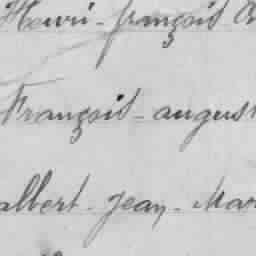 Henri - françois
François - august
albert - jean - Mar